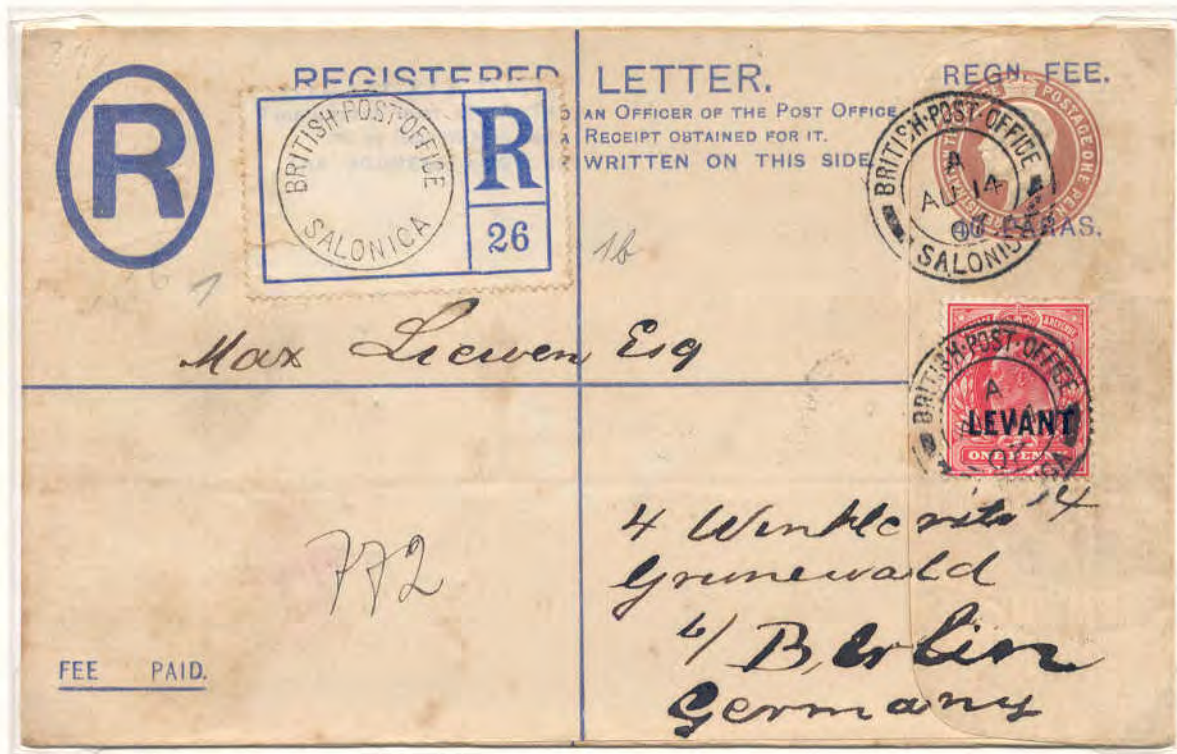 REGISTERED LETTER.
REGN. FEE.
R
AN OFFICER OF THE POST OFFICE
A RECEIPT OBTAINED FOR IT.
WRITTEN ON THIS SIDE
BRITISH·POST·OFFICE
SALONICA
R
26
POSTAGE ONE PEN
BRITISH·POST·OFFICE
A
AU 14
SALONICA
40 PARAS.
Max Liewen Esq
BRITISH·POST·OFFICE
A
LEVANT
ONE PENNY
4
Grunewald
b/ Berlin
Germany
772
FEE PAID.